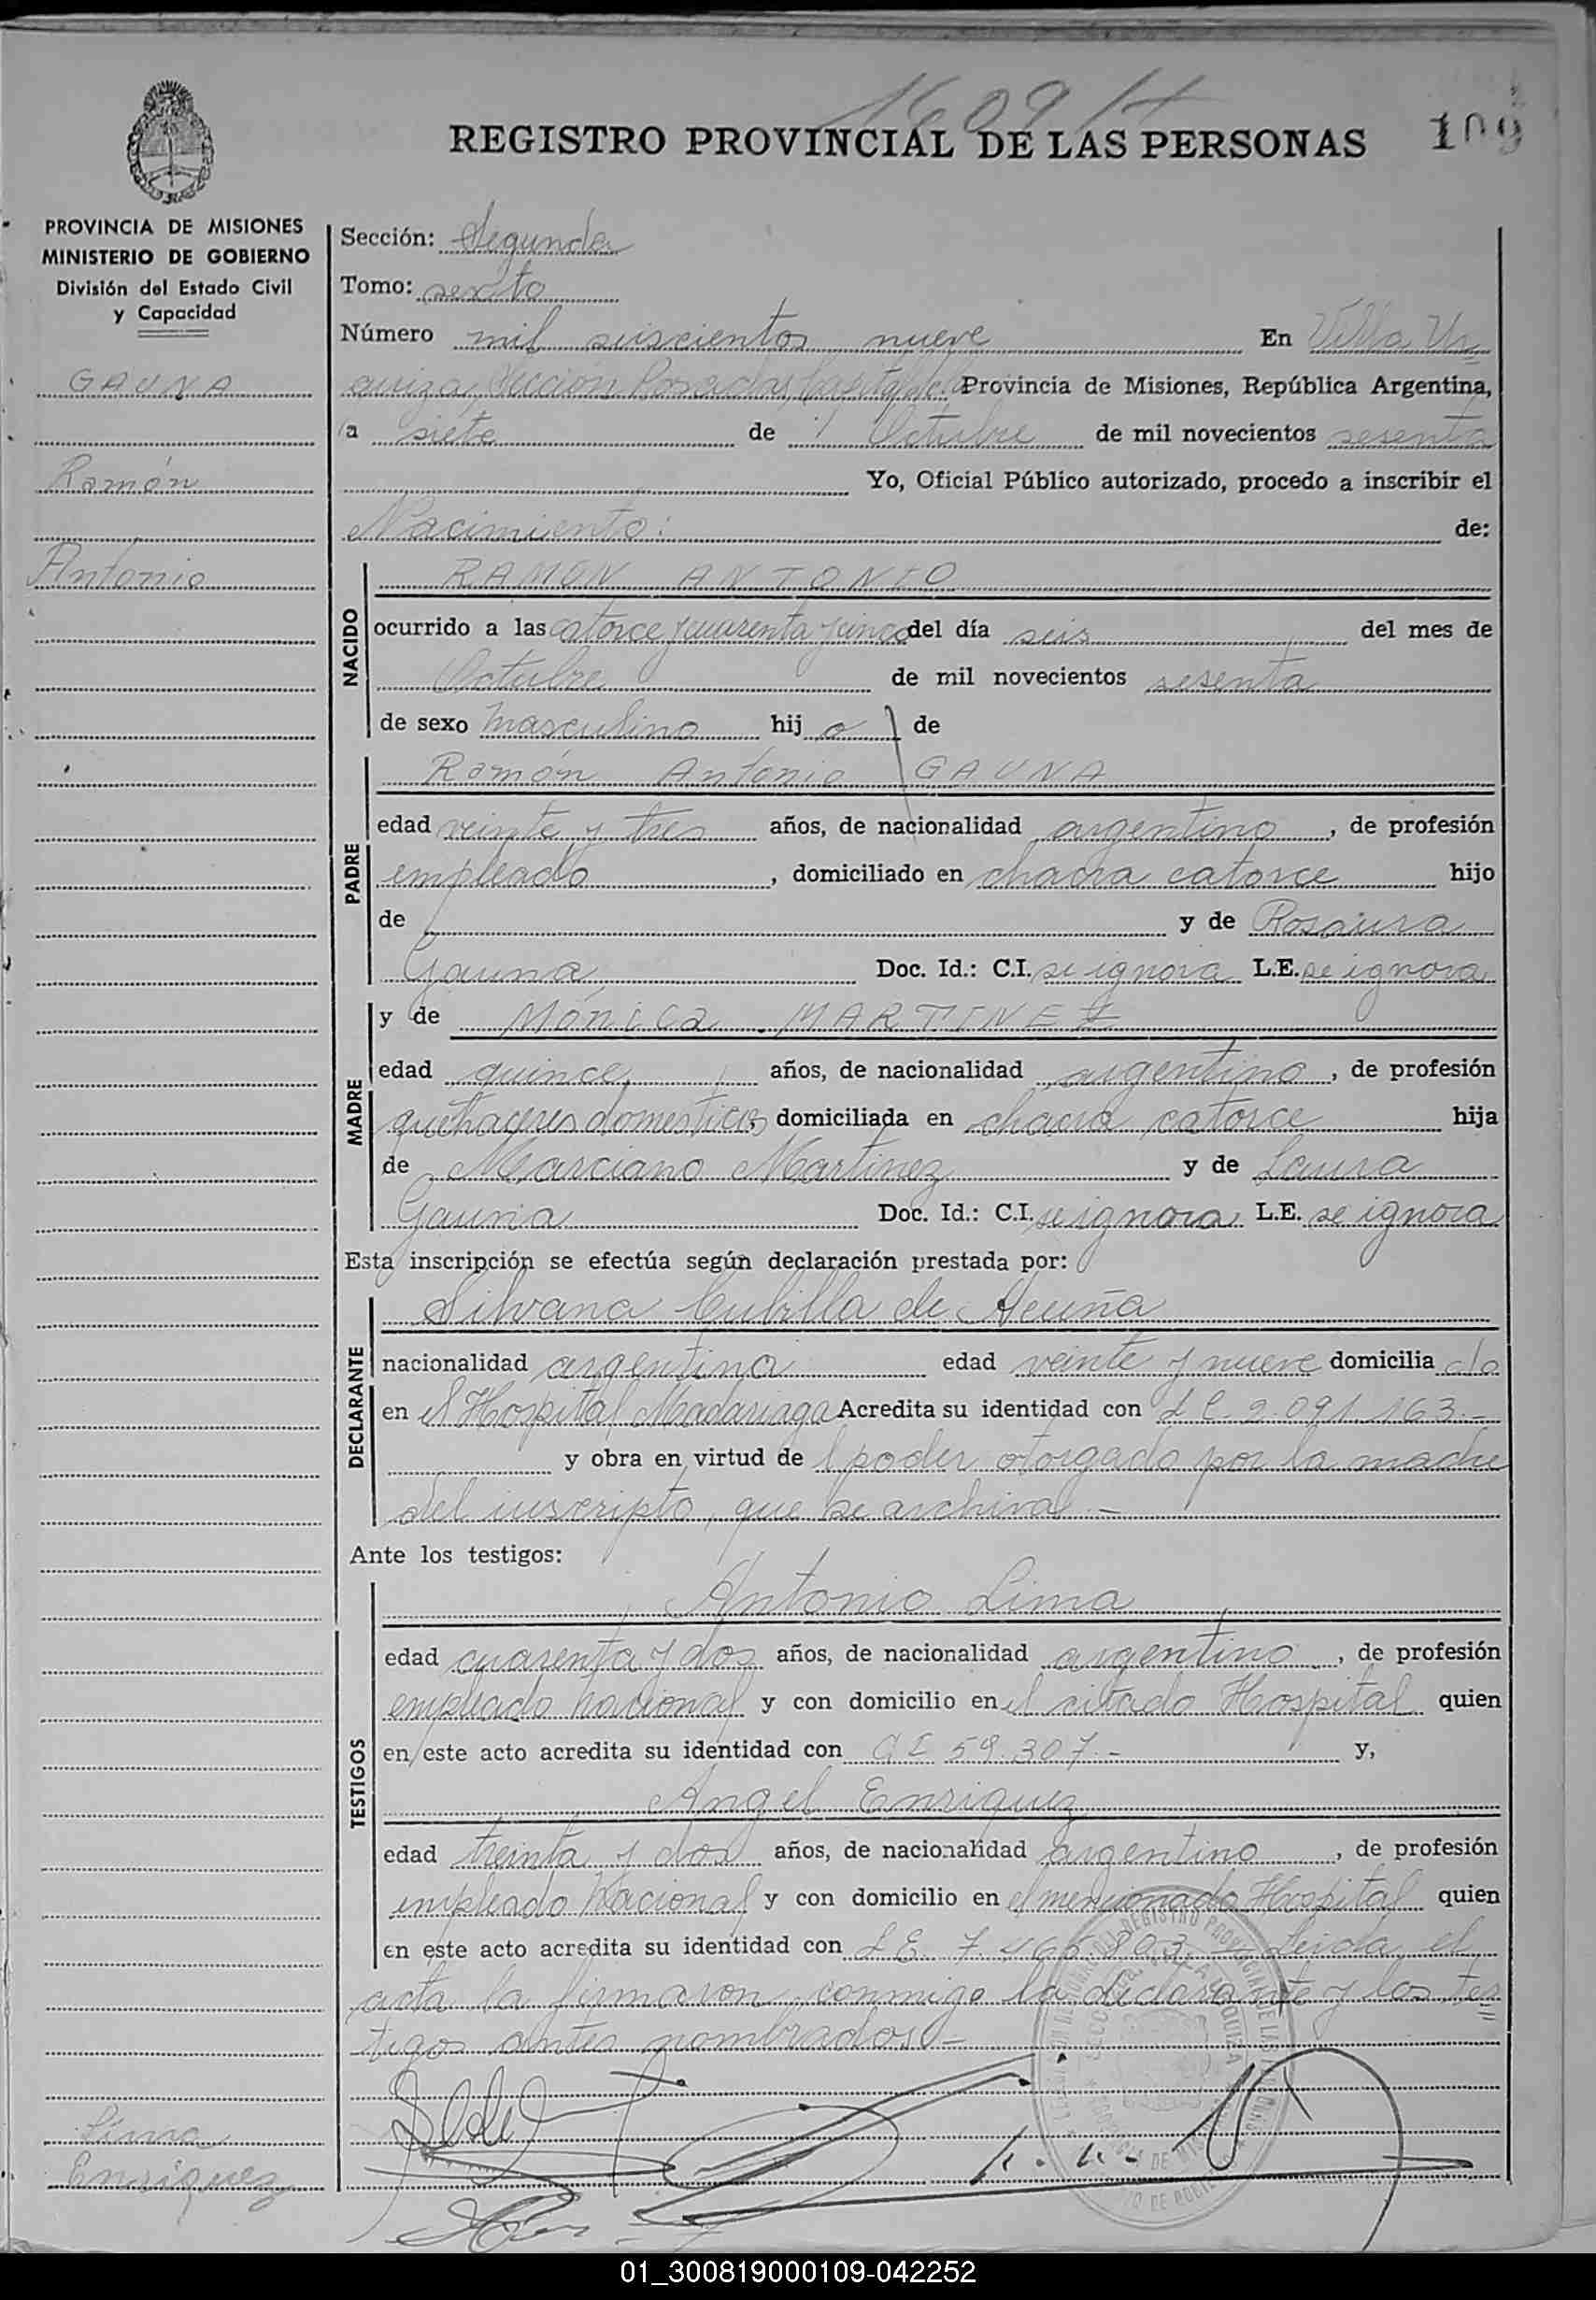 1609 /
REGISTRO PROVINCIAL DE LAS PERSONAS
109
PROVINCIA DE MISIONES
MINISTERIO DE GOBIERNO
División del Estado Civil
y Capacidad
GAUNA
Ramón
Antonio
Sección: Segunda
Tomo: sexto
Número mil seiscientos nueve En Villa Ur=
quiza, Sección Posadas, Capital de la Provincia de Misiones, República Argentina,
a siete de Octubre de mil novecientos sesenta
Yo, Oficial Público autorizado, procedo a inscribir el
Nacimiento: de:
NACIDO
RAMON ANTONIO
ocurrido a las catorce y cuarenta y cinco del día seis del mes de
Octubre de mil novecientos sesenta
de sexo masculino hij o de
PADRE
Ramón Antonio GAUNA
edad veinte y tres años, de nacionalidad argentino, de profesión
empleado, domiciliado en chacra catorce hijo
de y de Rosaura
Gauna Doc. Id.: C.I. se ignora L.E. se ignora
MADRE
y de Mónica MARTINEZ
edad quince años, de nacionalidad argentina, de profesión
quehaceres domesticos, domiciliada en chacra catorce hija
de Marciano Martinez y de Laura
Gauna Doc. Id.: C.I. se ignora L.E. se ignora
Esta inscripción se efectúa según declaración prestada por:
DECLARANTE
Silvana Cubilla de Acuña
nacionalidad argentina edad veinte y nueve domicilia da
en el Hospital Madariaga Acredita su identidad con L C. 2.091.163.-
y obra en virtud de l poder otorgado por la madre
del inscripto, que se archiva.-
Ante los testigos:
TESTIGOS
Antonio Lima
edad cuarenta y dos años, de nacionalidad argentino, de profesión
empleado nacional y con domicilio en el citado Hospital quien
en este acto acredita su identidad con CI 59.307.- y,
Angel Enriquez
edad treinta y dos años, de nacionalidad argentino, de profesión
empleado nacional y con domicilio en el mencionado Hospital quien
en este acto acredita su identidad con L E. 7.466.803.- Leida el
acta la firmaron conmigo la declarante y los tes=
tigos antes nombrados.-
Lima
Enriquez
01_300819000109-042252